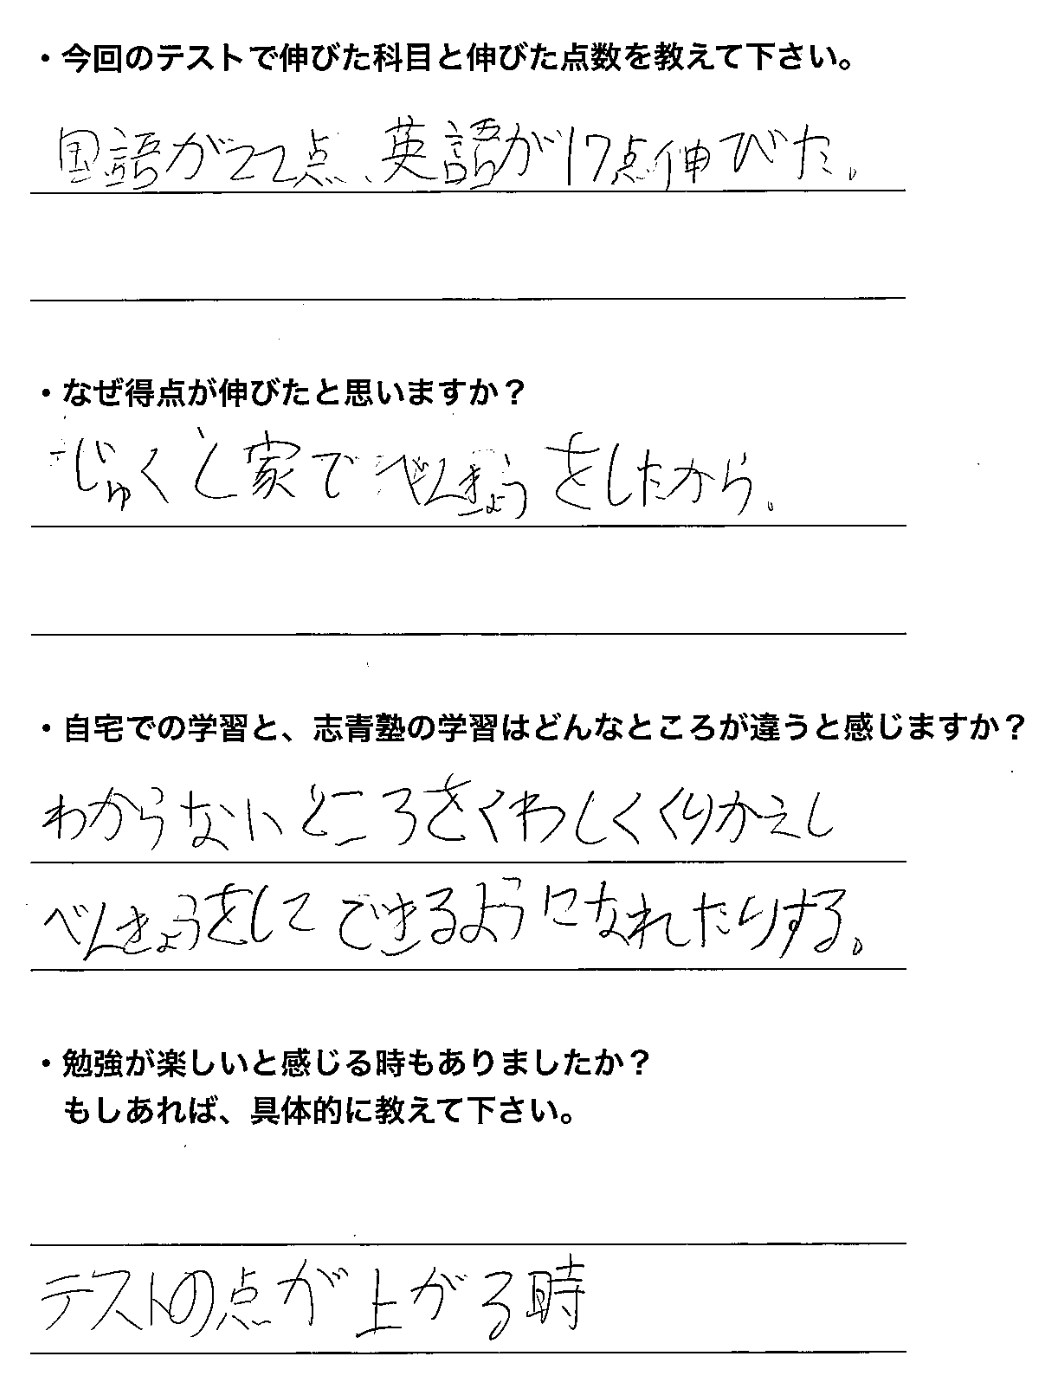 ・今回のテストで伸びた科目と伸びた点数を教えて下さい。
国語が22点、英語が17点伸びた。
・なぜ得点が伸びたと思いますか？
じゅくと家でべんきょうをしたから。
・自宅での学習と、志青塾の学習はどんなところが違うと感じますか？
わからないところをくわしくくりかえし
べんきょうをしてできるようになれたりする。
・勉強が楽しいと感じる時もありましたか？
もしあれば、具体的に教えて下さい。
テストの点が上がる時